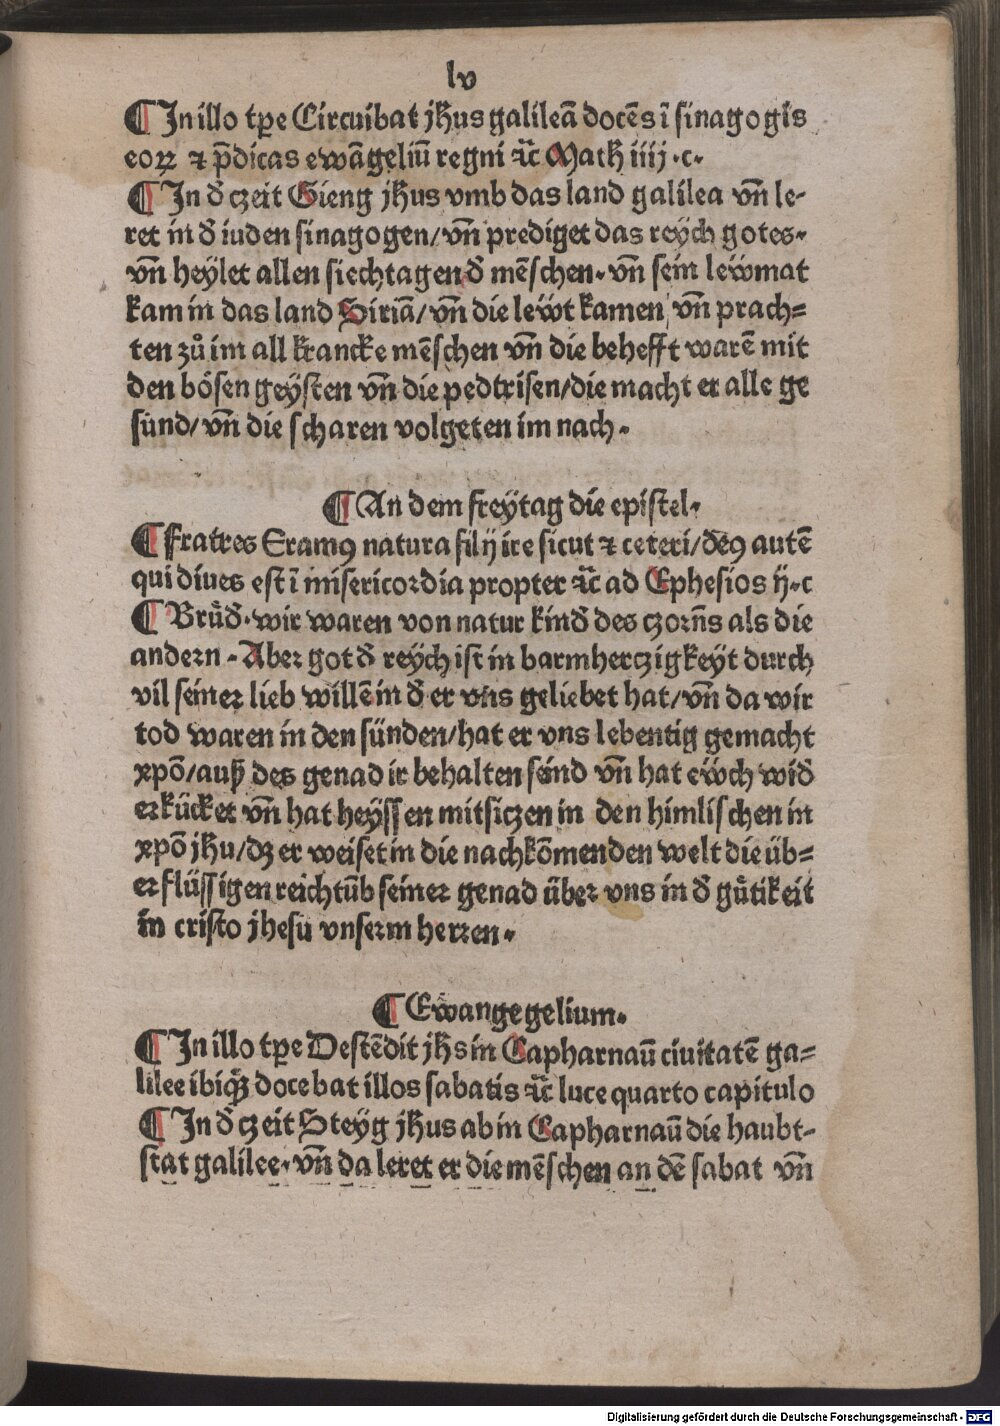 lv
¶ In illo tp̄e Circuibat jh̄us galileā docēs ī sinagogis
eoꝝ ⁊ p̄dicas ewāgeliū regni ⁊c̄ Math̄ iiij·c·
¶ In d̄ czeit Gieng jh̄us vmb das land galilea vn̄ le-
ret in d̄ iuden sinagogen/vn̄ prediget das reÿch gotes·
vn̄ heÿlet allen siechtagen d̄ mēschen·vn̄ sein lewmat
kam in das land Siriā/vn̄ die lewt kamen vn̄ prach=
ten zů im all krancke mēschen vn̄ die behefft warē mit
den bösen geÿsten vn̄ die pedtrisen/die macht er alle ge
sund/vn̄ die scharen volgeten im nach·
¶ An dem freÿtag die epistel·
¶ Fratres Eramꝰ natura filij ire sicut ⁊ ceteri/deꝰ autē
qui diues est ī misericordia propter ⁊c̄ ad Ephesios ij·c
¶ Brůd̄·wir waren von natur kind̄ des czorn̄s als die
andern·Aber got d̄ reÿch ist in barmherczigkeÿt durch
vil seiner lieb willē in d̄ er vns geliebet hat/vn̄ da wir
tod waren in den sünden/hat er vns lebentig gemacht
xpō/auß des genad ir behalten seind vn̄ hat ewch wid̄
erkücket vn̄ hat heÿssen mitsiczen in den himlischen in
xpō jh̄u/dz er weiset in die nachkōmenden welt die üb-
erflüssigen reichtūb seiner genad über vns in d̄ gůtikeit
in cristo jhesu vnserm herren·
¶ Ewangegelium·
¶ In illo tp̄e Destēdit jh̄s in Capharnaū ciuitatē ga=
lilee ibiqꝫ docebat illos sabatis ⁊c̄ luce quarto capitulo
¶ In d̄ czeit Steÿg jh̄us ab in Capharnaū die haubt-
stat galilee·vn̄ da leret er die mēschen an dē sabat vn̄
Digitalisierung gefördert durch die Deutsche Forschungsgemeinschaft - DFG